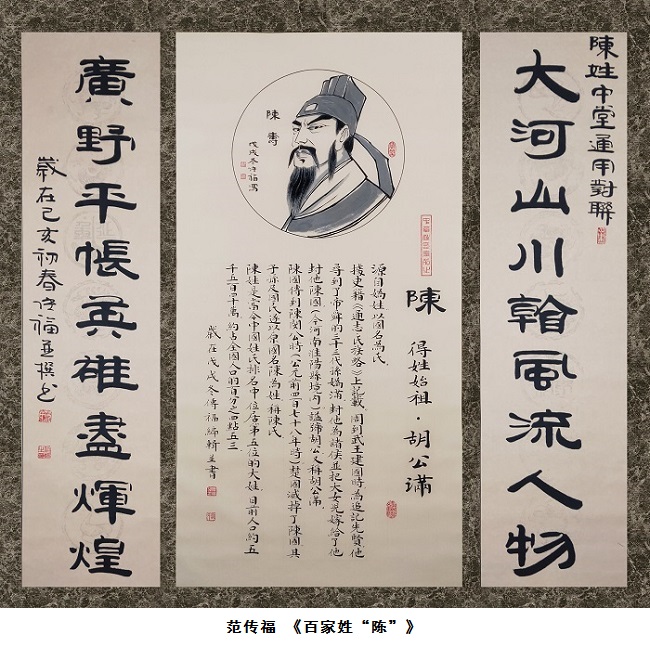 陳姓中堂運用對聯
大河山川翰風流人物
陳
得姓始祖·胡公滿
源自媯姓以國名為氏
據史籍《通志氏族略》上記載，周到武王建國時，為追記先賢他
尋到了帝舜的三十三代孫媯滿，封他為諸侯並把大女兒嫁給了他
封他陳國（今河南淮陽縣境内）謚號胡公又稱胡公滿
陳國傳到陳閔公時（公元前四百七十八年時）楚國滅掉了陳國其
子孫及國民遂以原國名陳為姓稱陳氏
陳姓是當今中國姓氏排名中位居第五位的大姓，目前人口約五
千五百二十萬，約占全國人口的百分之四點五三
歲在戊戌冬傳福編輯並書
陳壽
戊戌冬传福寫
廣野平帳英雄盡輝煌
歲在己亥初春传福並撰书
范传福 《百家姓“陈”》